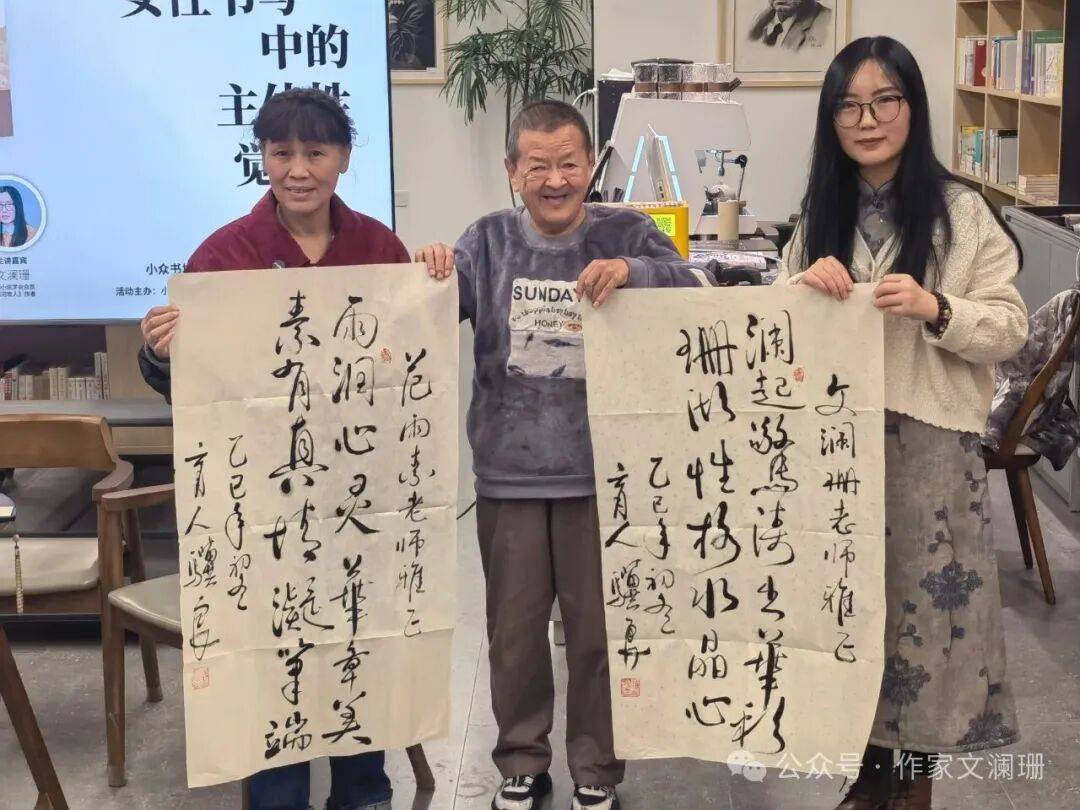 中的
主体性
觉
主讲嘉宾
文澜珊
小众书
活动主办：小
SUNDAY
HONEY
范雨素老师雅正
雨润心灵華章美
素有真情凝笔端
乙巳年初冬
育人骥
文澜珊老师雅正
澜起驚涛華彩
珊瑚性格水晶心
乙巳年初冬
育人骥
公众号·作家文澜珊